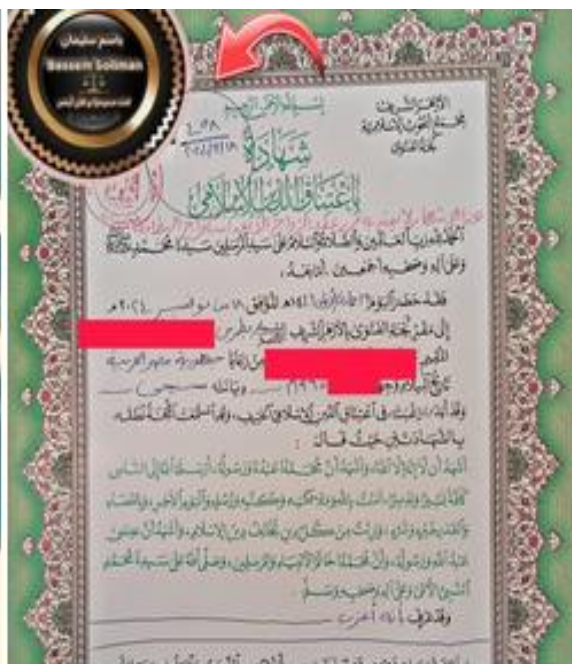 باسم سليمان
Bassem Soliman
الأزهر الشريف
مجمع البحوث الإسلامية
لجنة الفتوى
بسم الله الرحمن الرحيم
شهادة
باعتناق الدين الإسلامي
الحمد لله رب العالمين والصلاة والسلام على سيد المرسلين سيدنا محمد ﷺ
وعلى آله وصحبه أجمعين. أما بعد:
فقد حضر اليوم الموافق ١٨ من نوفمبر ٢٠٢٤م
إلى مقر لجنة الفتوى بالأزهر الشريف
المقيم من رعايا جمهورية مصر العربية
تاريخ الميلاد وديانته مسيحي
وقد أبدى رغبته في اعتناق الدين الإسلامي الحنيف، وقد أجابت اللجنة لطلبه
بالشهادتين حيث قال:
أشهد أن لا إله إلا الله، وأشهد أن محمدا عبده ورسوله، أرسله الله إلى الناس
كافة بشيرا ونذيرا، آمنت بالله وملائكته وكتبه ورسله واليوم الآخر، وبالقضاء
والقدر خيره وشره، وبرئت من كل دين يخالف دين الإسلام، وأشهد أن عيسى
عبد الله ورسوله، وأن محمدا خاتم الأنبياء والمرسلين، وصلى الله على سيدنا محمد
النبي الأمي وعلى آله وصحبه وسلم.
وقد قرر أنه أعزب